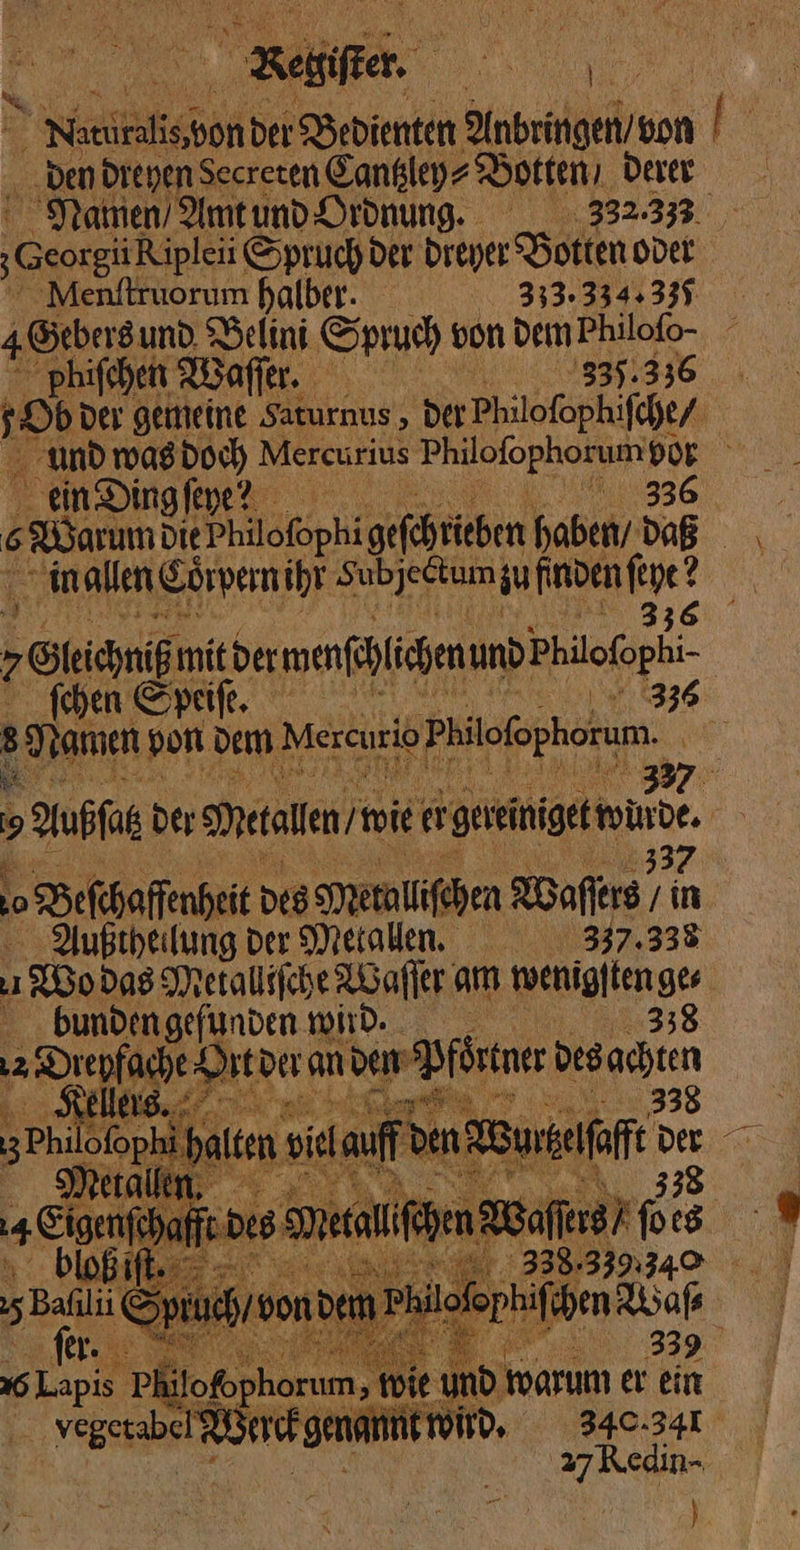 Regiſter.
Naturalis, von der Bedienten Anbringen/ von
den dreyen Secreten Cantzley⸗Botten/ derer
Namen/ Amt und Ordnung. 332.333
3 Georgii Ripleii Spruch der dreyer Botten oder
Menſtruorum halber. 333.334.335
4 Gebers und Belini Spruch von dem Philoſo-
phiſchen Waſſer. 335.336
5 Ob der gemeine Saturnus, der Philoſophiſche/
und was doch Mercurius Philoſophorum vor
ein Ding ſeye? 336
6 Warum die Philoſophi geſchrieben haben/ daß
in allen Coͤrpern ihr Subjectum zu finden ſeye?
336
7 Gleichniß mit der menſchlichen und Philoſophi-
ſchen Speiſe. 336
8 Namen von dem Mercurio Philoſophorum.
337
9 Außſatz der Metallen/ wie er gereiniget wuͤrde.
337
20 Beſchaffenheit des Metalliſchen Waſſers / in
Außtheilung der Metallen. 337.338
21 Wo das Metalliſche Waſſer am wenigſten ge⸗
bunden gefunden wird. 338
22 Dreyfache Ort der an den Pfoͤrtner des achten
Kellers. 338
23 Philoſophi halten viel auff den Wurtzelſafft der
Metallen. 338
24 Eigenſchafft des Metalliſchen Waſſers/ ſo es
bloß iſt. 338.339.340
25 Baſilii Spruch/ von dem Philoſophiſchen Waſ⸗
ſer. 339
26 Lapis Philoſophorum, wie und warum er ein
vegetabel Werck genannt wird. 340.341
27 Redin-